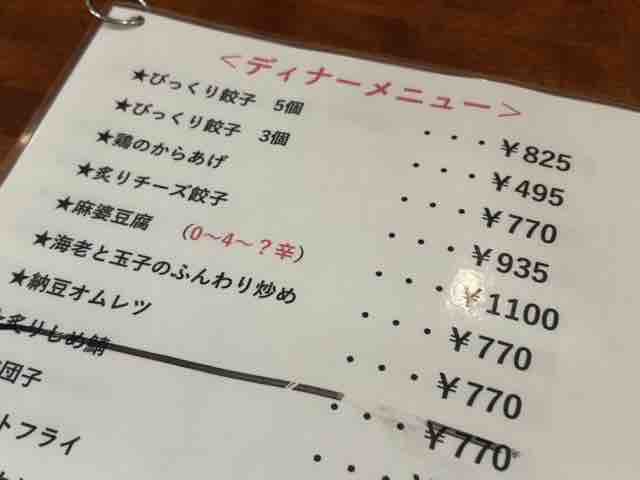 ＜ディナーメニュー＞
★びっくり餃子 5個 ・・・￥825
★びっくり餃子 3個 ・・・￥495
★鶏のからあげ ・・・￥770
★炙りチーズ餃子 ・・・￥935
★麻婆豆腐 （0～4～？辛） ・・・￥1100
★海老と玉子のふんわり炒め ・・・￥770
★納豆オムレツ ・・・￥770
炙りしめ鯖 ・・・￥770
団子
トフライ